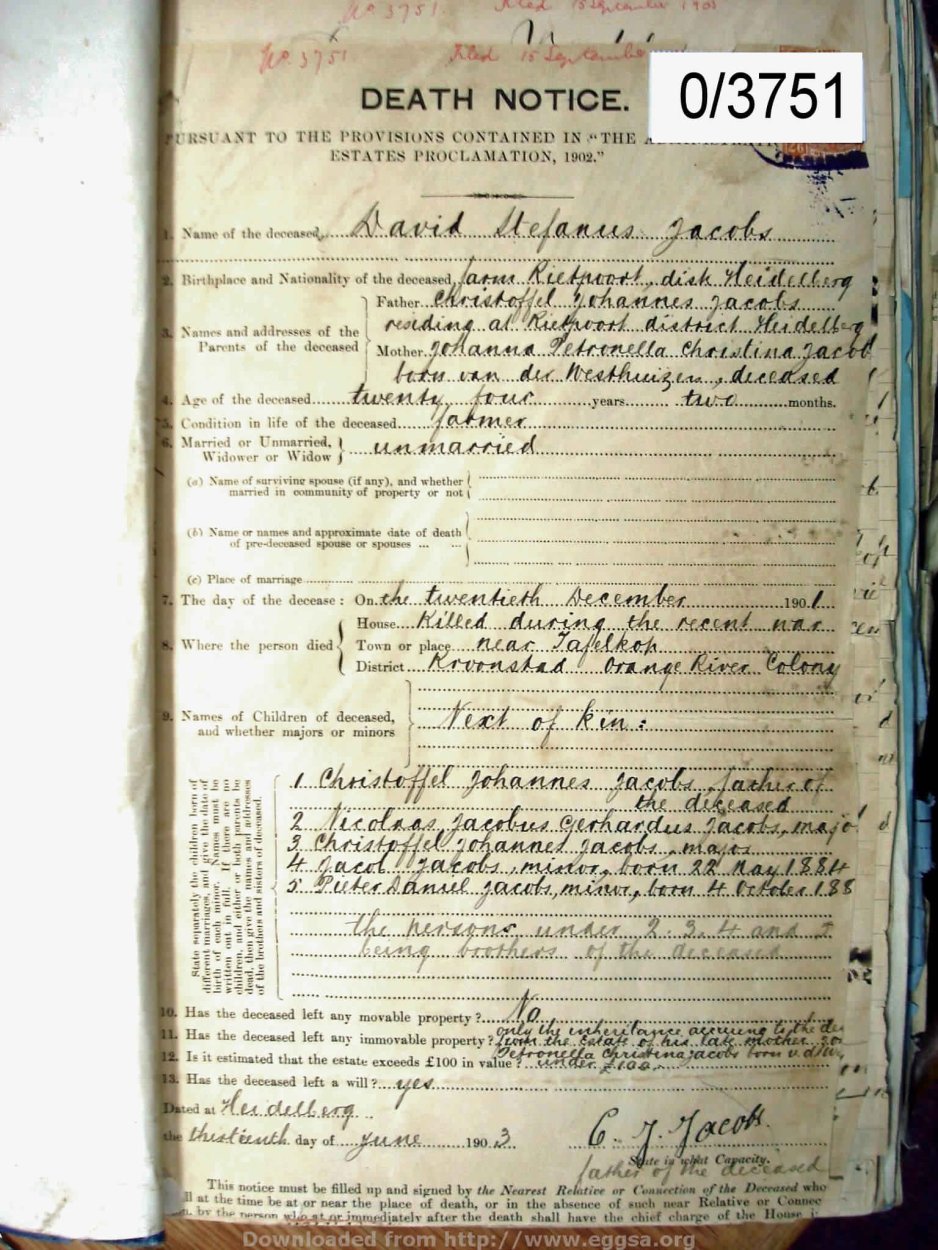 No 3751. Filed 15 September 1903
No 3751 Filed 15 September
0/3751
DEATH NOTICE.
PURSUANT TO THE PROVISIONS CONTAINED IN "THE
ESTATES PROCLAMATION, 1902."
1. Name of the deceased David Stefanus Jacobs
2. Birthplace and Nationality of the deceased, farm Rietpoort, distr Heidelberg
Father Christoffel Johannes Jacobs
3. Names and addresses of the residing at Rietpoort district Heidelberg
Parents of the deceased Mother Johanna Petronella Christina Jacob
born van der Westhuizen, deceased
4. Age of the deceased twenty four years two months.
5. Condition in life of the deceased Farmer
6. Married or Unmarried, unmarried
Widower or Widow
(a) Name of surviving spouse (if any), and whether
married in community of property or not
(b) Name or names and approximate date of death
of pre-deceased spouse or spouses ... ...
(c) Place of marriage
7. The day of the decease: On the twentieth December 1901
House Killed during the recent war
8. Where the person died Town or place near Tafelkop
District Kroonstad Orange River Colony
9. Names of Children of deceased, Next of kin:
and whether majors or minors
State separately the children born of
different marriages, and give the date of
birth of each minor. Names must be
written out in full. If there are no
children and either or both parents be
dead, then give the names and addresses
of the brothers and sisters of deceased.
1 Christoffel Johannes Jacobs father of
the deceased
2 Nicolaas Jacobus Gerhardus Jacobs, major
3 Christoffel Johannes Jacobs major
4 Jacob Jacobs, minor, born 22 May 1884
5 Pieter Daniel Jacobs, minor, born 4 October 188
the persons under 2. 3. 4 and 5
being brothers of the deceased
10. Has the deceased left any movable property? No
11. Has the deceased left any immovable property? only the inheritance accruing to the de
from the Estate of his late mother Jo
12. Is it estimated that the estate exceeds £100 in value? Petronella Christina Jacobs born v.d.
under £100
13. Has the deceased left a will? yes
Dated at Heidelberg
the thirteenth day of June 1903 C. J. Jacobs
State in what Capacity.
father of the deceased
This notice must be filled up and signed by the Nearest Relative or Connection of the Deceased who
ll at the time be at or near the place of death, or in the absence of such near Relative or Connec
n, by the person who at or immediately after the death shall have the chief charge of the House i
Downloaded from http://www.eggsa.org